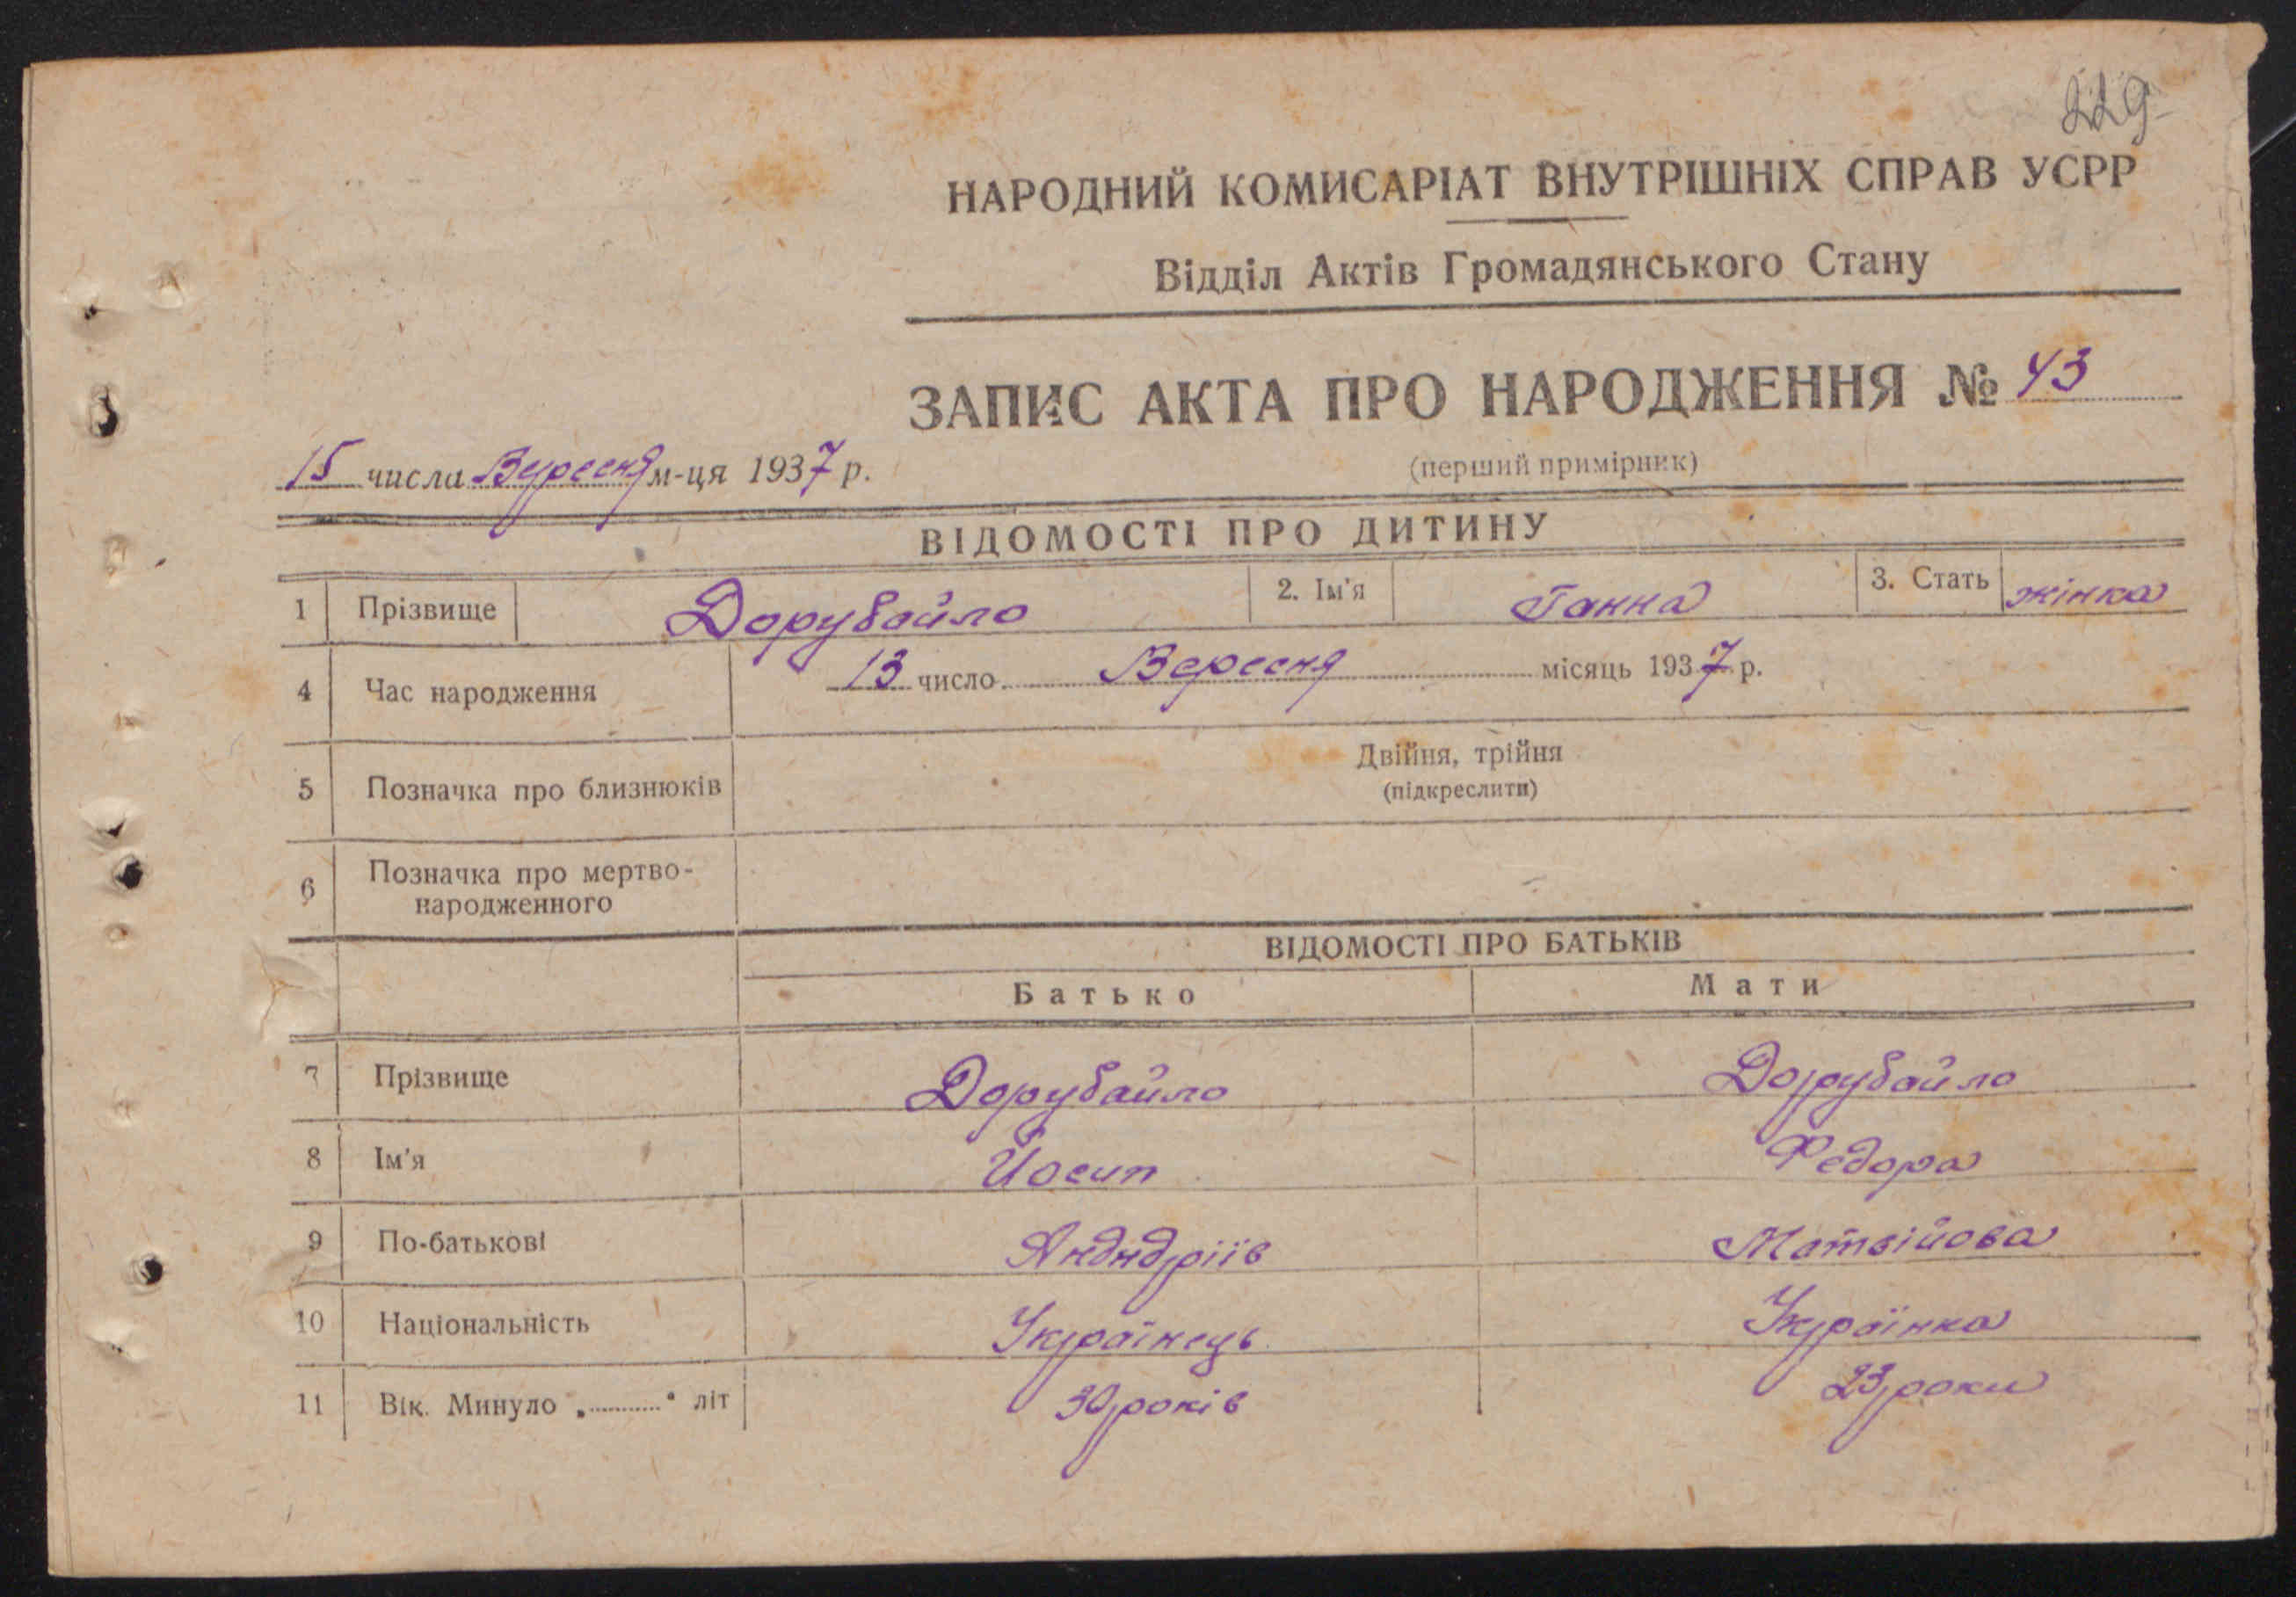 229
НАРОДНИЙ КОМИСАРІАТ ВНУТРІШНІХ СПРАВ УСРР
Відділ Актів Громадянського Стану
ЗАПИС АКТА ПРО НАРОДЖЕННЯ № 43
(перший примірник)
15 числа Вересня м-ця 1937 р.
ВІДОМОСТІ ПРО ДИТИНУ
1 Прізвище Дорубайло 2. Ім'я Ганна 3. Стать жінка
4 Час народження 13 число Вересня місяць 1937 р.
5 Позначка про близнюків Двійня, трійня
(підкреслити)
6 Позначка про мертво-
народженного
ВІДОМОСТІ ПРО БАТЬКІВ
Батько Мати
7 Прізвище Дорубайло Дорубайло
8 Ім'я Йосип Федора
9 По-батькові Андндріїв Матвійова
10 Національність Українець Українка
11 Вік. Минуло „..........“ літ 30 років 23 роки